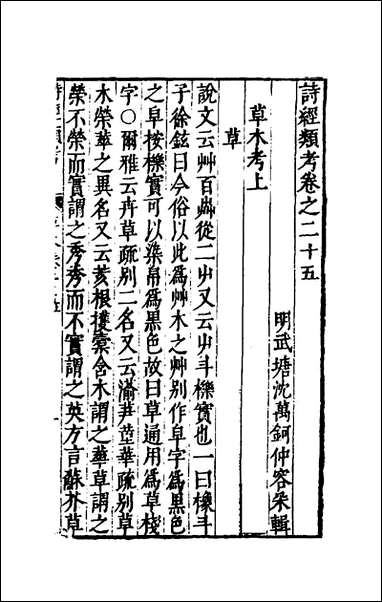 詩經類考卷之二十五
明武塘沈萬鈳仲容采輯
草木考上
草
說文云艸百芔從二屮又云屮斗櫟實也一曰橡斗
子徐鉉曰今俗以此為艸木之艸別作皁字為黑色
之皁按櫟實可以染帛為黑色故曰草通用為草棧
字○爾雅云卉草疏別二名又云蕍芛葟華疏別草
木榮華之異名又云荄根欔橐含木謂之華草謂之
榮不榮而實謂之秀秀而不實謂之英方言蘇芥草